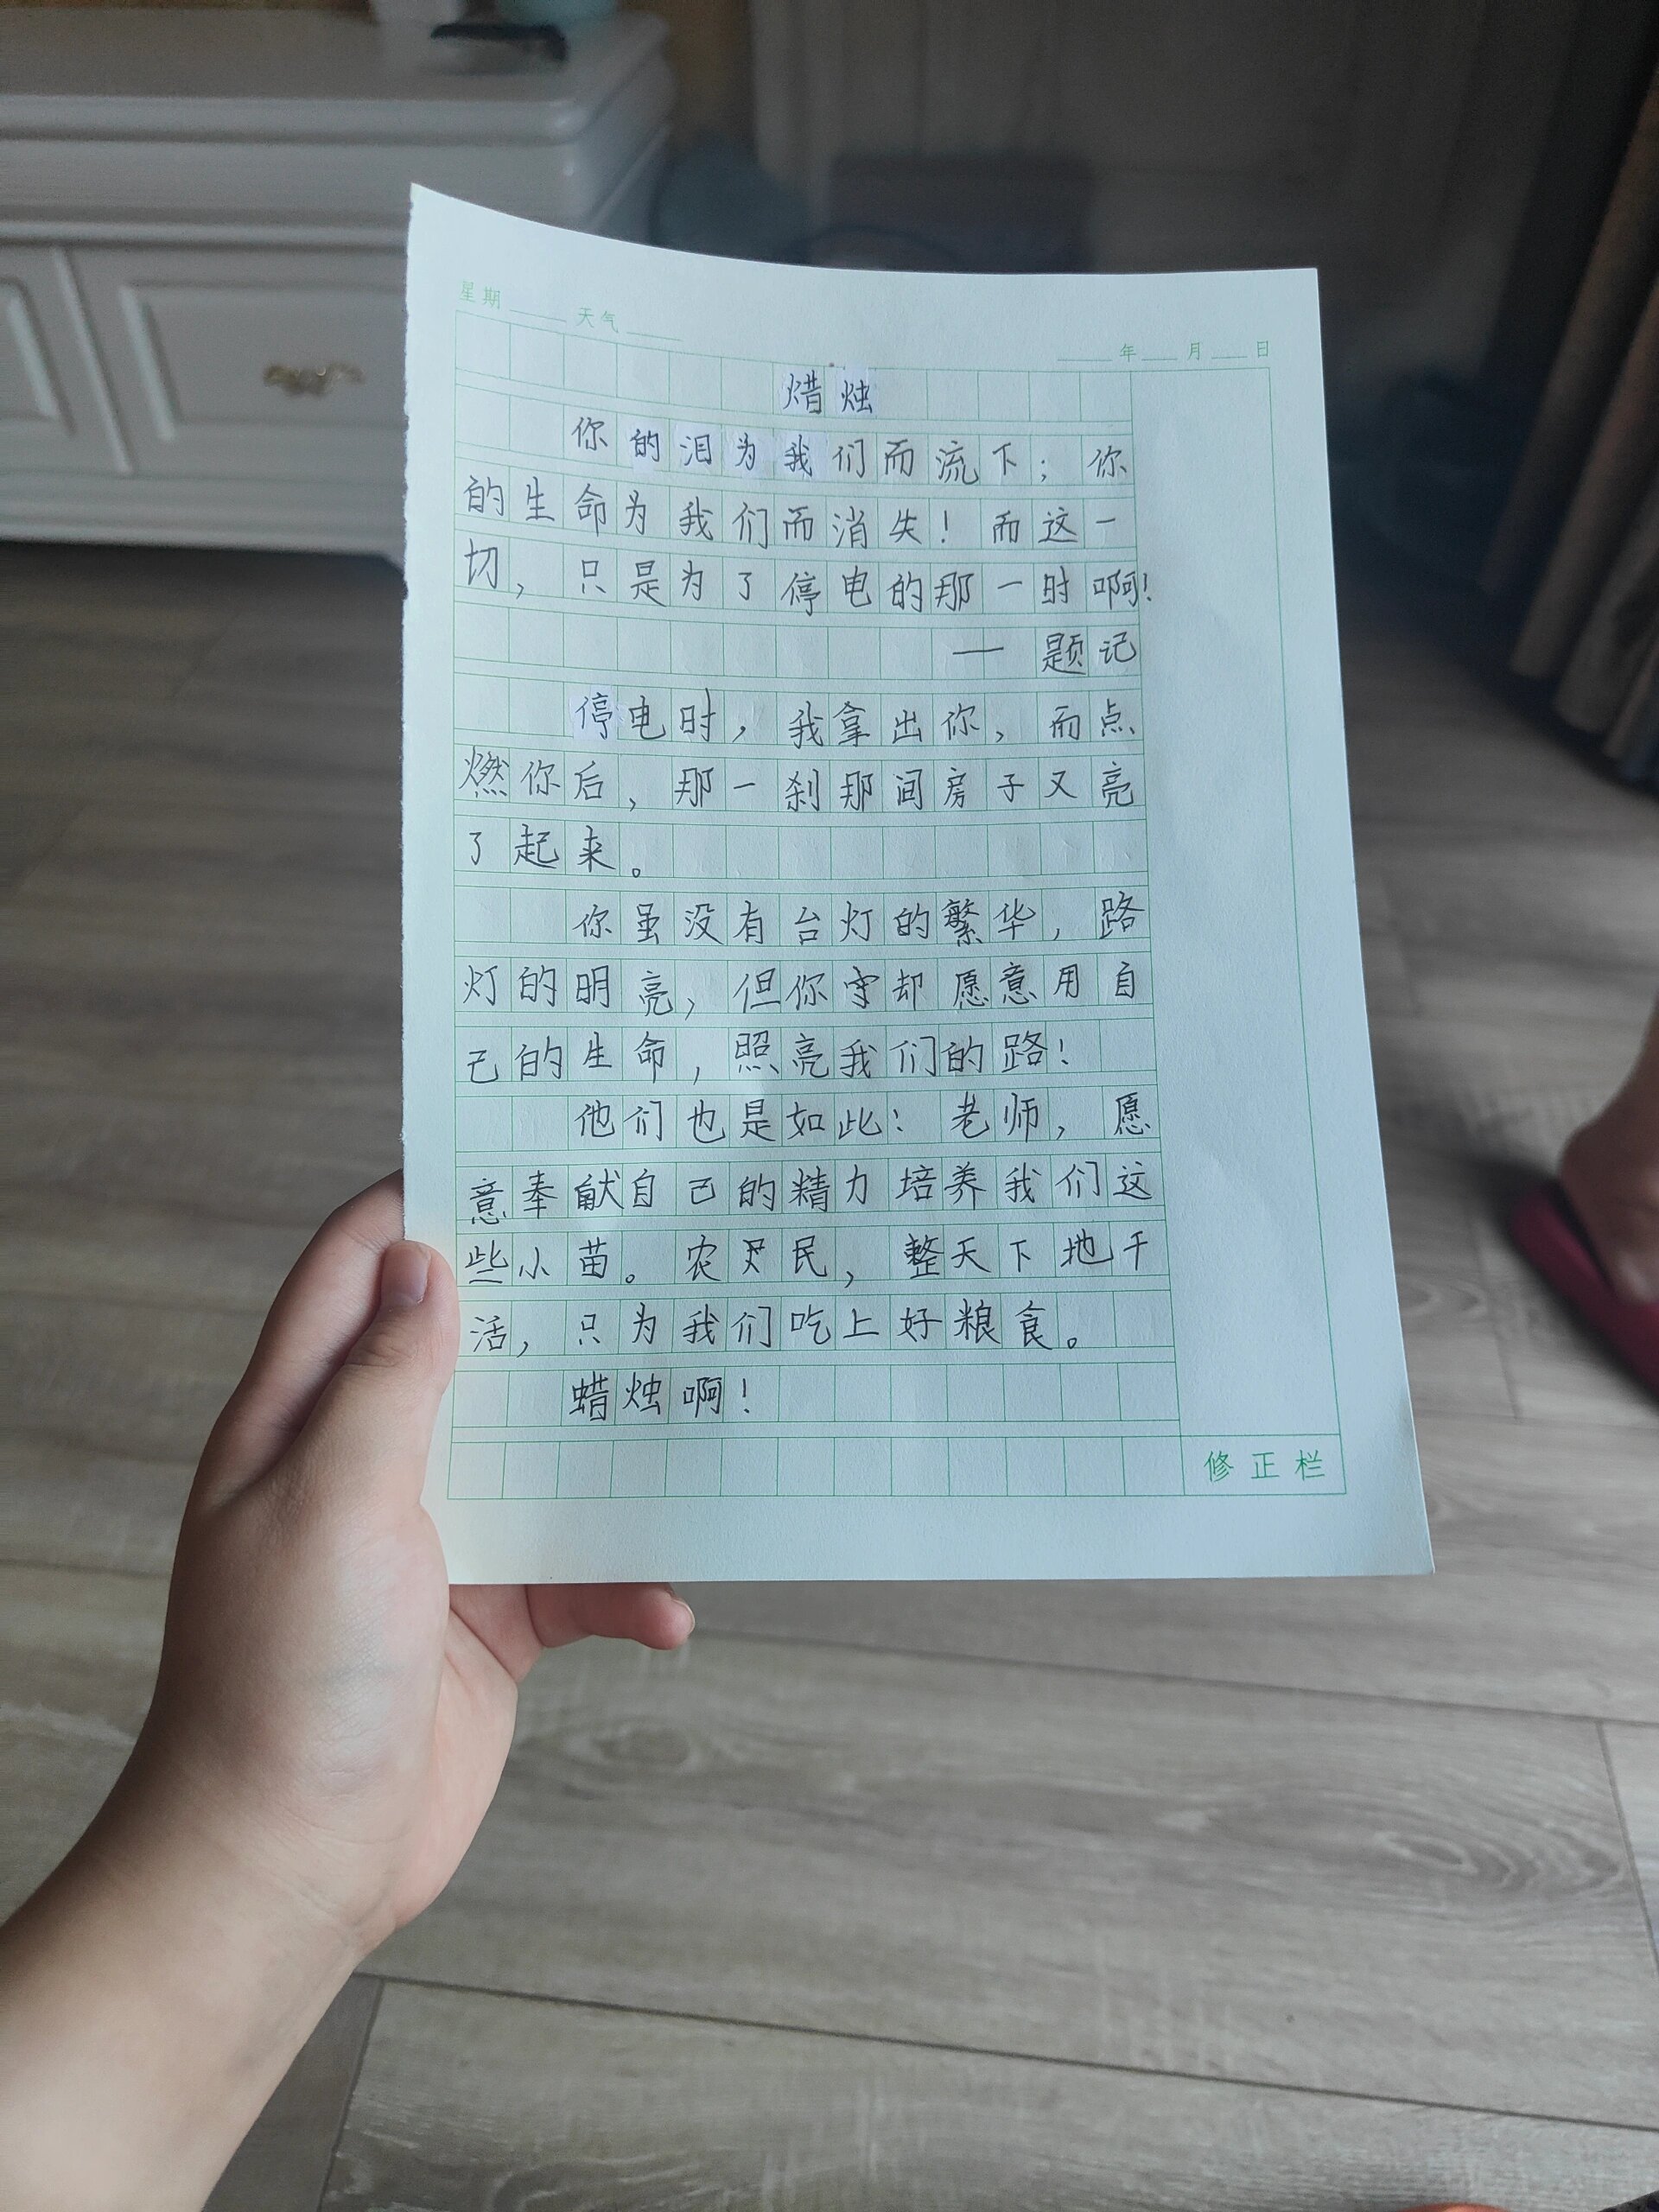 星期 天气
年 月 日
蜡烛
你的泪为我们而流下；你
的生命为我们而消失！而这一
切，只是为了停电的那一时啊！
— 题记
停电时，我拿出你，而点
燃你后，那一刹那间房子又亮
了起来。
你虽没有台灯的繁华，路
灯的明亮，但你却愿意用自
己的生命，照亮我们的路！
他们也是如此：老师，愿
意奉献自己的精力培养我们这
些小苗。农民，整天下地干
活，只为我们吃上好粮食。
蜡烛啊！
修正栏